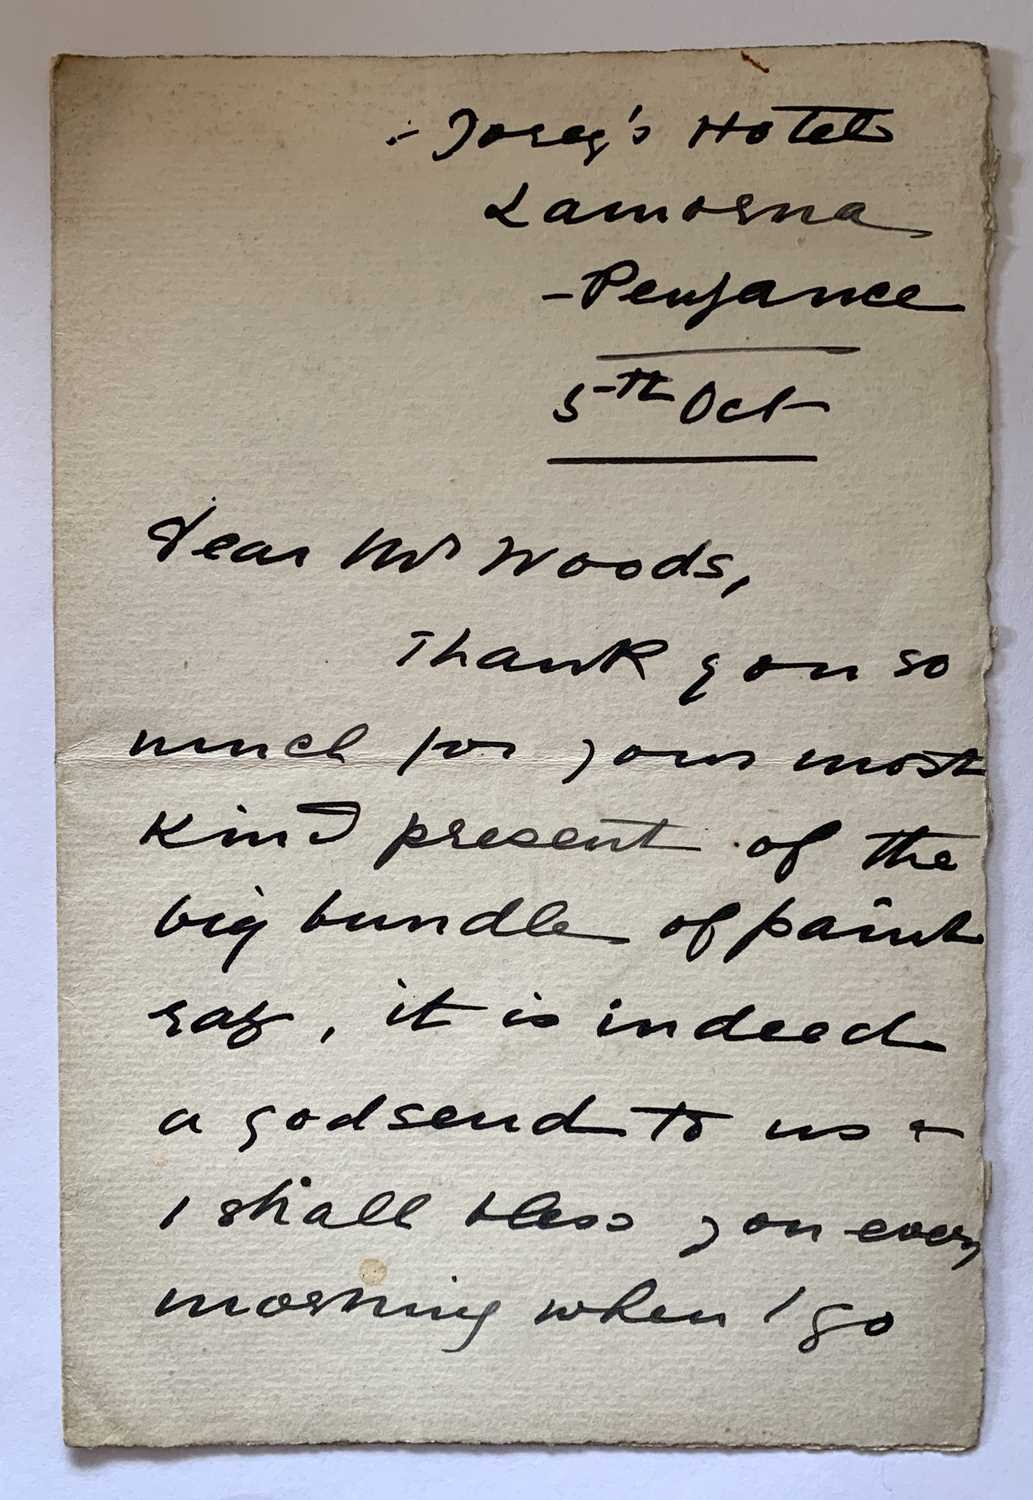 Jorey's Hotel
Lamorna
- Penzance
5th Oct
Dear Mr Woods,
Thank you so
much for your most
kind present of the
big bundle of paint
rag, it is indeed
a godsend to us &
I shall bless you every
morning when I go